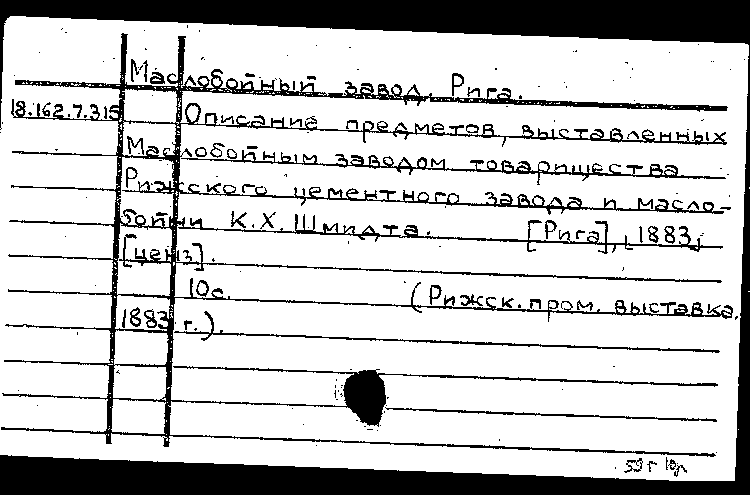 Маслобойный завод. Рига.
18.162.7.315 Описание предметов, выставленных
Маслобойным заводом товарищества
Рижского цементного завода и масло-
бойни К.Х. Шмидта. [Рига], 1883,
[ценз].
10с. (Рижск. пром. выставка.
1883 г.).
59г